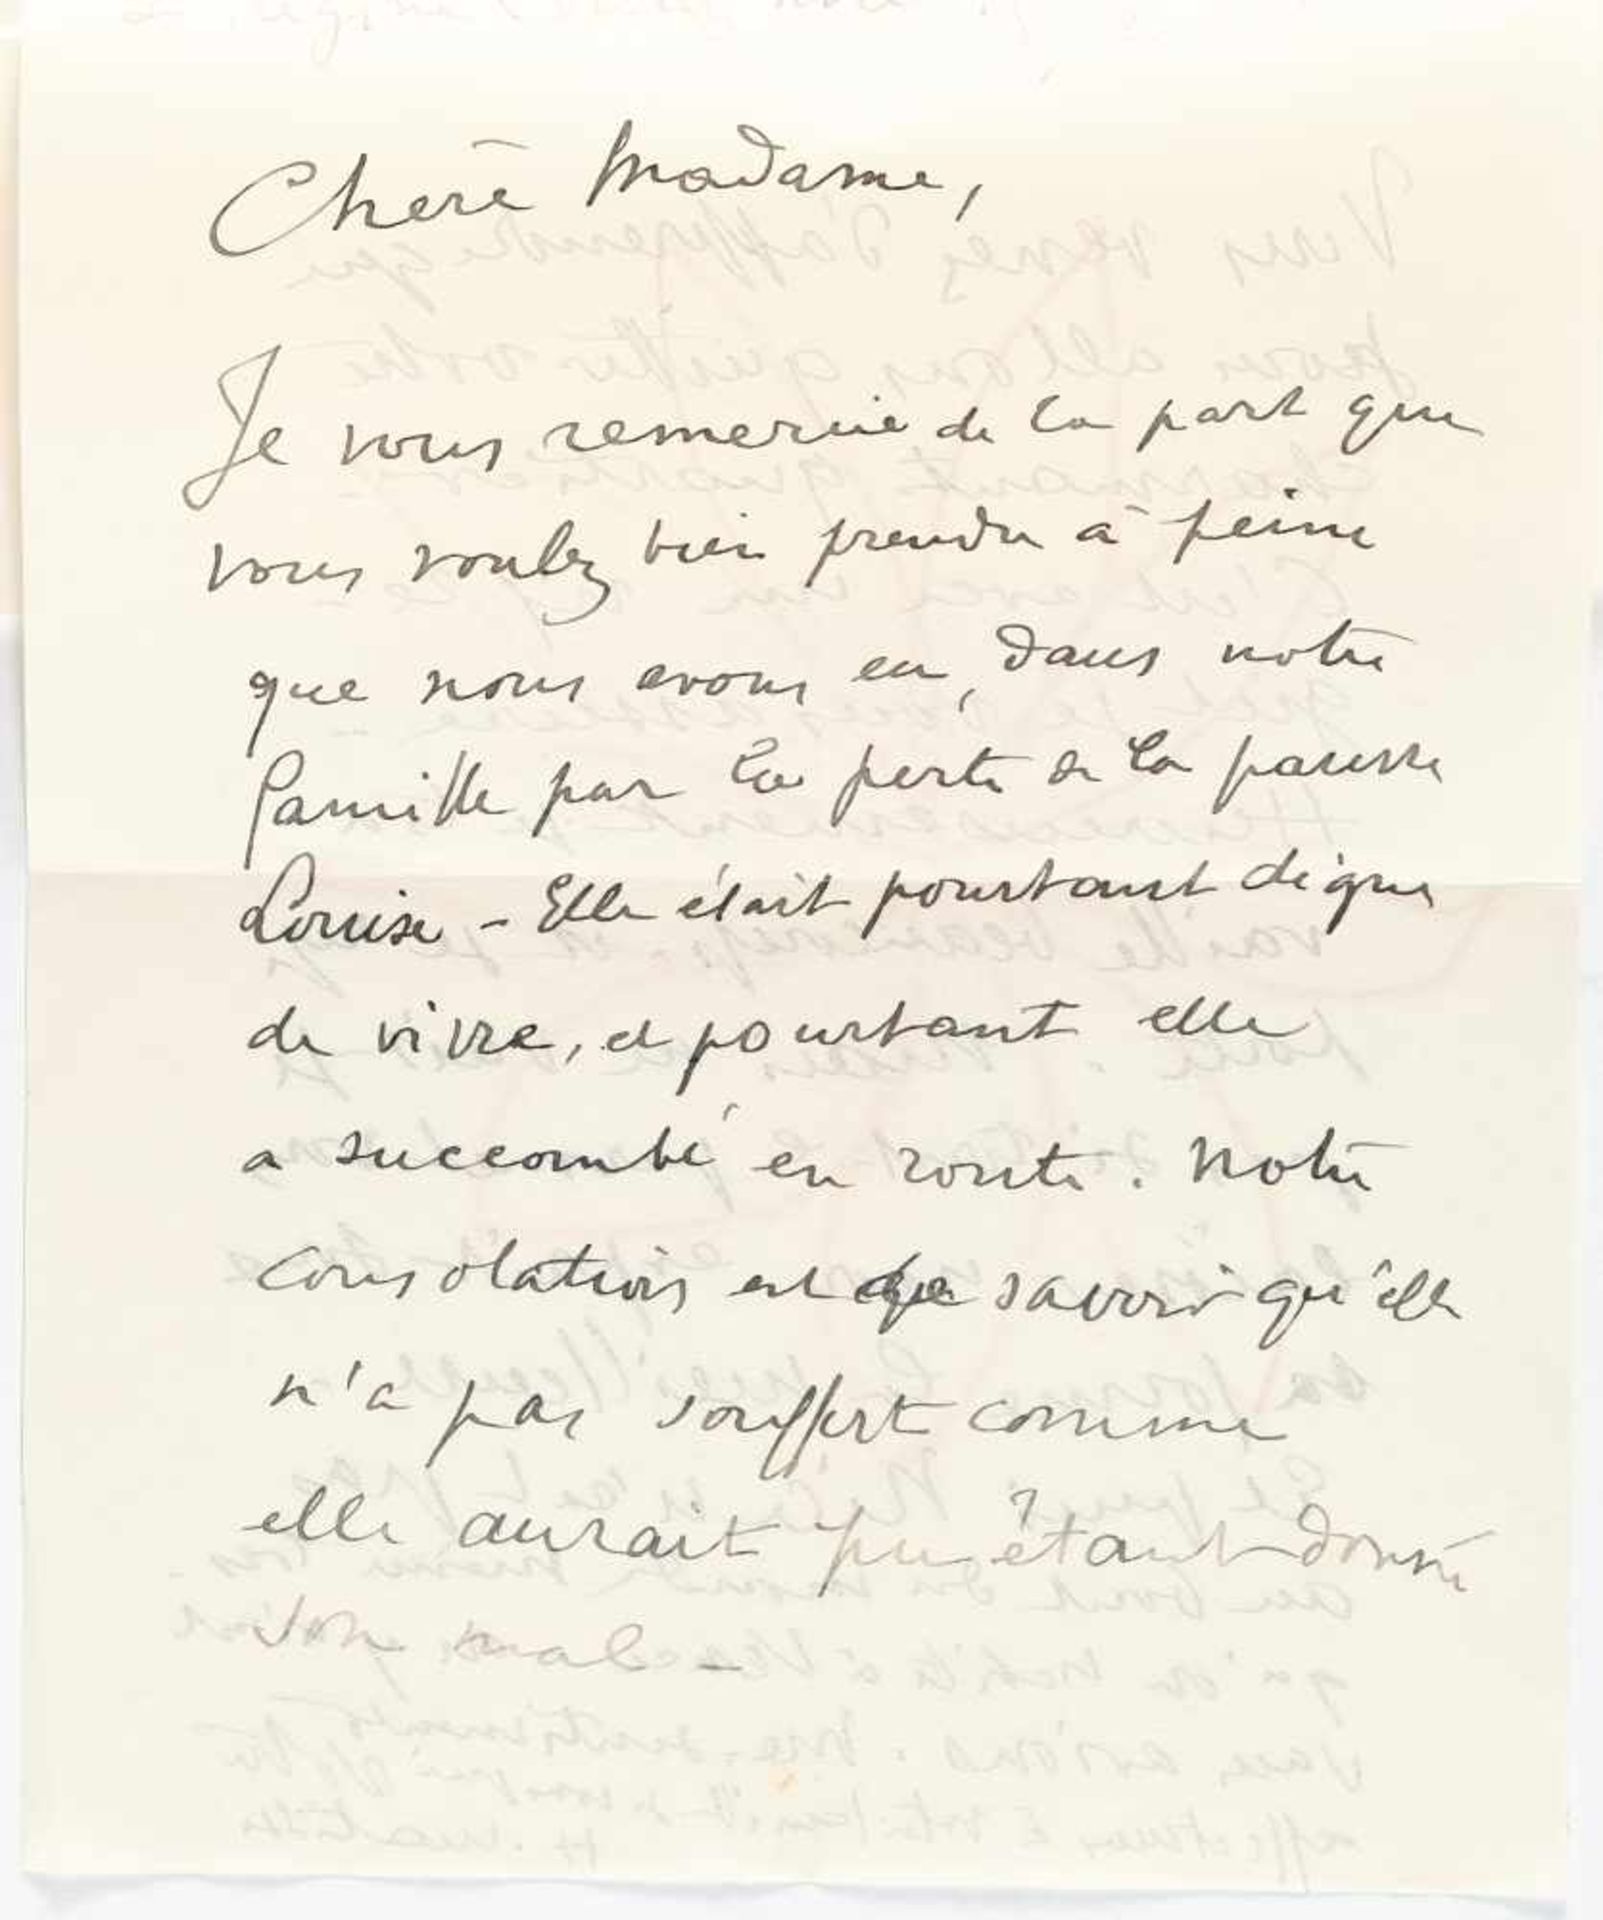 Chère Madame,
Je vous remercie de la part que
vous voulez bien prendre à peine
que nous avons eu, dans notre
famille par la perte de la pauvre
Louise - Elle était pourtant digne
de vivre, et pourtant elle
a succombé en route. Notre
consolation est de savoir qu'elle
n'a pas souffert comme
elle aurait pu étant donné
son mal -